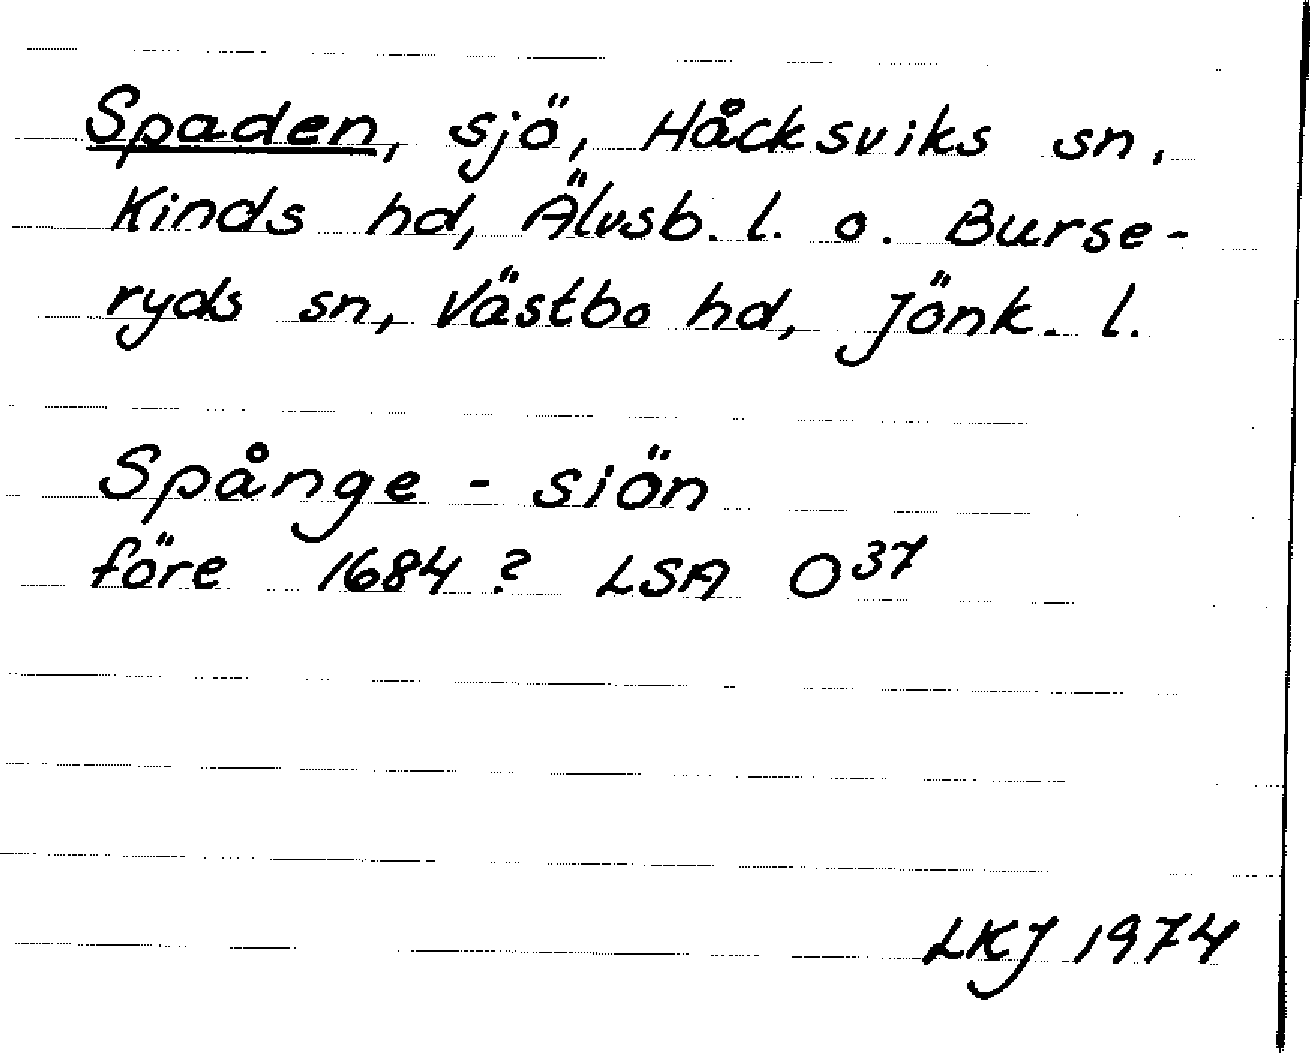 Spaden, sjö, Håcksviks sn,
Kinds hd, Älvsb. l. o. Burse-
ryds sn, Västbo hd, Jönk. l.
Spånge - siön
före 1684? LSA O³⁷
LKJ 1974